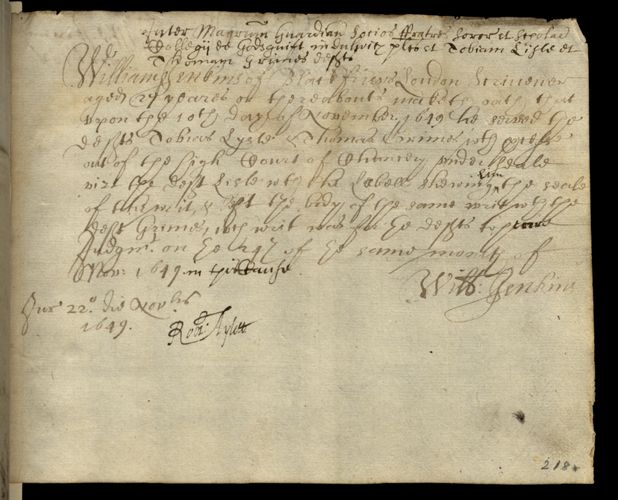 Inter Magrum Guardian Socios ffratres Soror et Scolar
Collegij de Godsguift in Dulwich plts et Tobiam Lisle et
Thomam Grimes defts
Willm Jenkins of Blackfriers London Scrivener
aged 27 yeares or thereabouts maketh oath that
upon the 10th day of November 1649 he served the
defts Tobias Lysle & Thomas Grimes wth
out of the high Court of Chancery under seale
vizt the deft Lisle wth the Labell shewing him the seale
of the writ, & left the body of the same writ wth the
deft Grimes, wch writ was for the defts to
Judgmt. on the of the same moneth of
Nov: 1649 in this cause
Willm: Jenkins
Jur 22º. die Novbris
1649.
Robt: Aylett
218